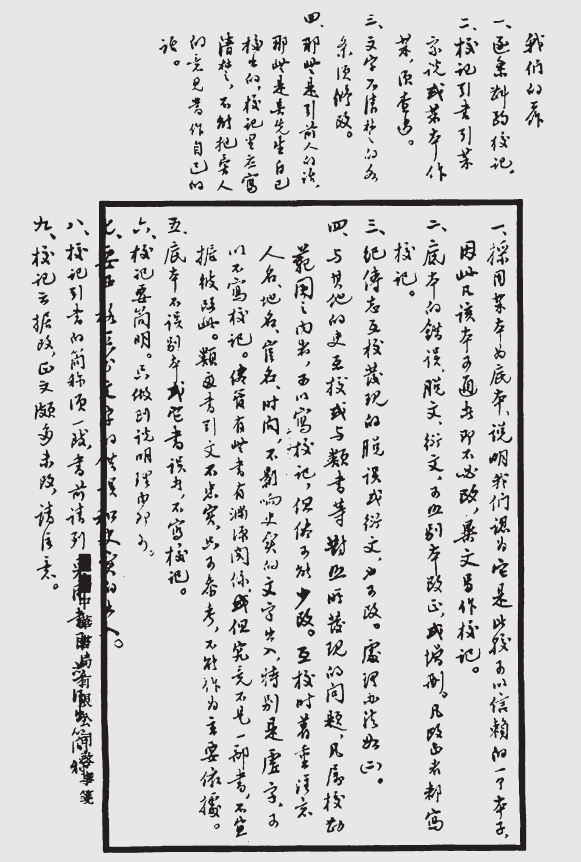 我们的工作
一、逐条斟酌校记。
二、校记引书引某
家说或某本作
某，须查过。
三、文字不清楚的各
条须修改。
四、那些是引前人的说，
那些是吴先生自已
校出的，校记里应写
清楚，不能把旁人
的意见当作自己的
说。
一、採用某本为底本，说明我们认为它是比较可以信赖的一个本子，
因此凡该本可通者即不必改，异文另作校记。
二、底本的错误、脱文、衍文，可照别本改正，或增删。凡改正者都写
校记。
三、纪传志互校发现的脱误或衍文，也可改。处理办法如（二）。
四、与其他的史互校或与类书等对照所发现的问题，凡属校勘
范围之内者，可以写校记，但俗可能少改。互校时着重注意
人名、地名、官名、时间，不影响史实的文字出入，特别是虚字，可
以不写校记。侭管有些书有渊源关係，或但究竟不是一部书，不宜
据彼改此。类书引文不忠实，只可参考，不能作为主要依据。
五、底本不误别本或它书误者，不写校记。
六、校记要简明。只做到说明理由即可。
七、要 文字的 和史实的出入。
八、校记引书的简称须一致，书前请列
中华书局有限公司 笺
九、校记云据改，正文颇多未改，请注意。